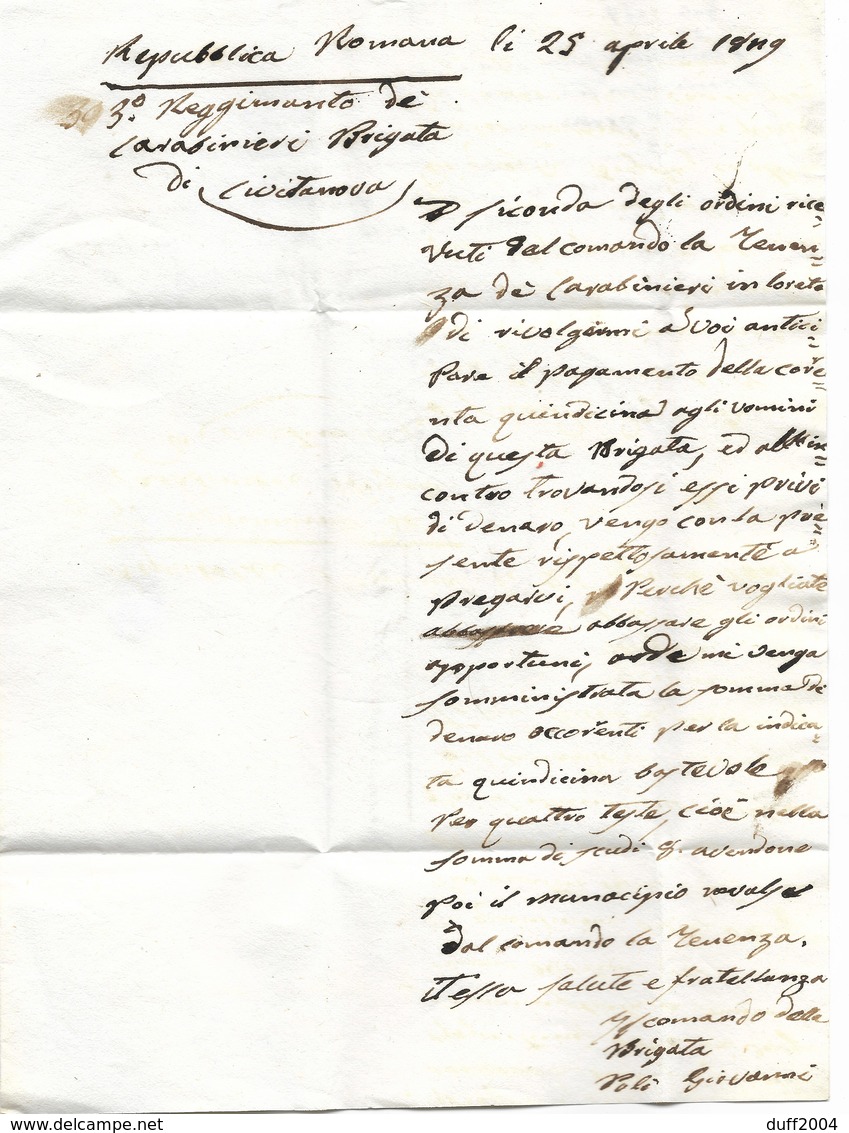 Repubblica Romana li 25 aprile 1849
3º. Reggimanto dè
Carabinieri Brigata
di Civitanova
A siconda degli ordini rice=
vuti dal comando la Tenen=
za dè Carabinieri in loreto
di rivolgermi a voi antici=
pare il pagamento della core=
nta quindicina agli uomini
di questa Brigata, ed allin=
contro trovandosi essi privi
di denaro, vengo con la pre=
sente rispettosamente a
pregarvi, Perchè vogliate
abbassare gli ordini
opportuni, onde mi venga
somministrata la somma di
denaro occorenti per la indica=
ta quindicina bastevole
Per quattro teste, cioè nella
somma di scudi 8. avendone
Poi il municipio rivalsa
dal comando la Tenenza.
itessa salute e fratellanza
Il comando della
Brigata
Poli Giovanni
www.delcampe.net
duff2004